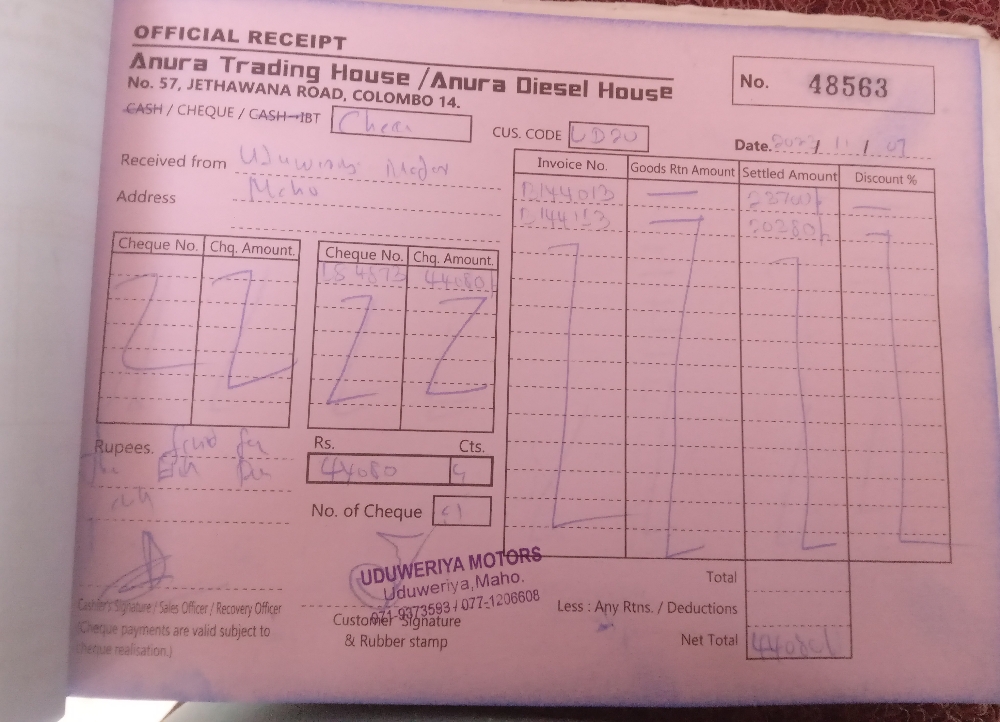 OFFICIAL RECEIPT
Anura Trading House /Anura Diesel House
No. 57, JETHAWANA ROAD, COLOMBO 14.
No. 48563
CASH / CHEQUE / CASH-IBT
CUS. CODE UD20
Date. / 11 / 07
Received from
Address Maho
Invoice No. Goods Rtn Amount Settled Amount Discount %
B144013
B144153 20380/
Cheque No. Chq. Amount. Cheque No. Chq. Amount.
44080/
Rupees.
Rs. Cts.
44080
No. of Cheque
UDUWERIYA MOTORS
Uduweriya,Maho.
071-9373593 / 077-1206608
Cashier's Signature / Sales Officer / Recovery Officer
(Cheque payments are valid subject to
cheque realisation.)
Customer Signature
& Rubber stamp
Total
Less : Any Rtns. / Deductions
Net Total 44080/